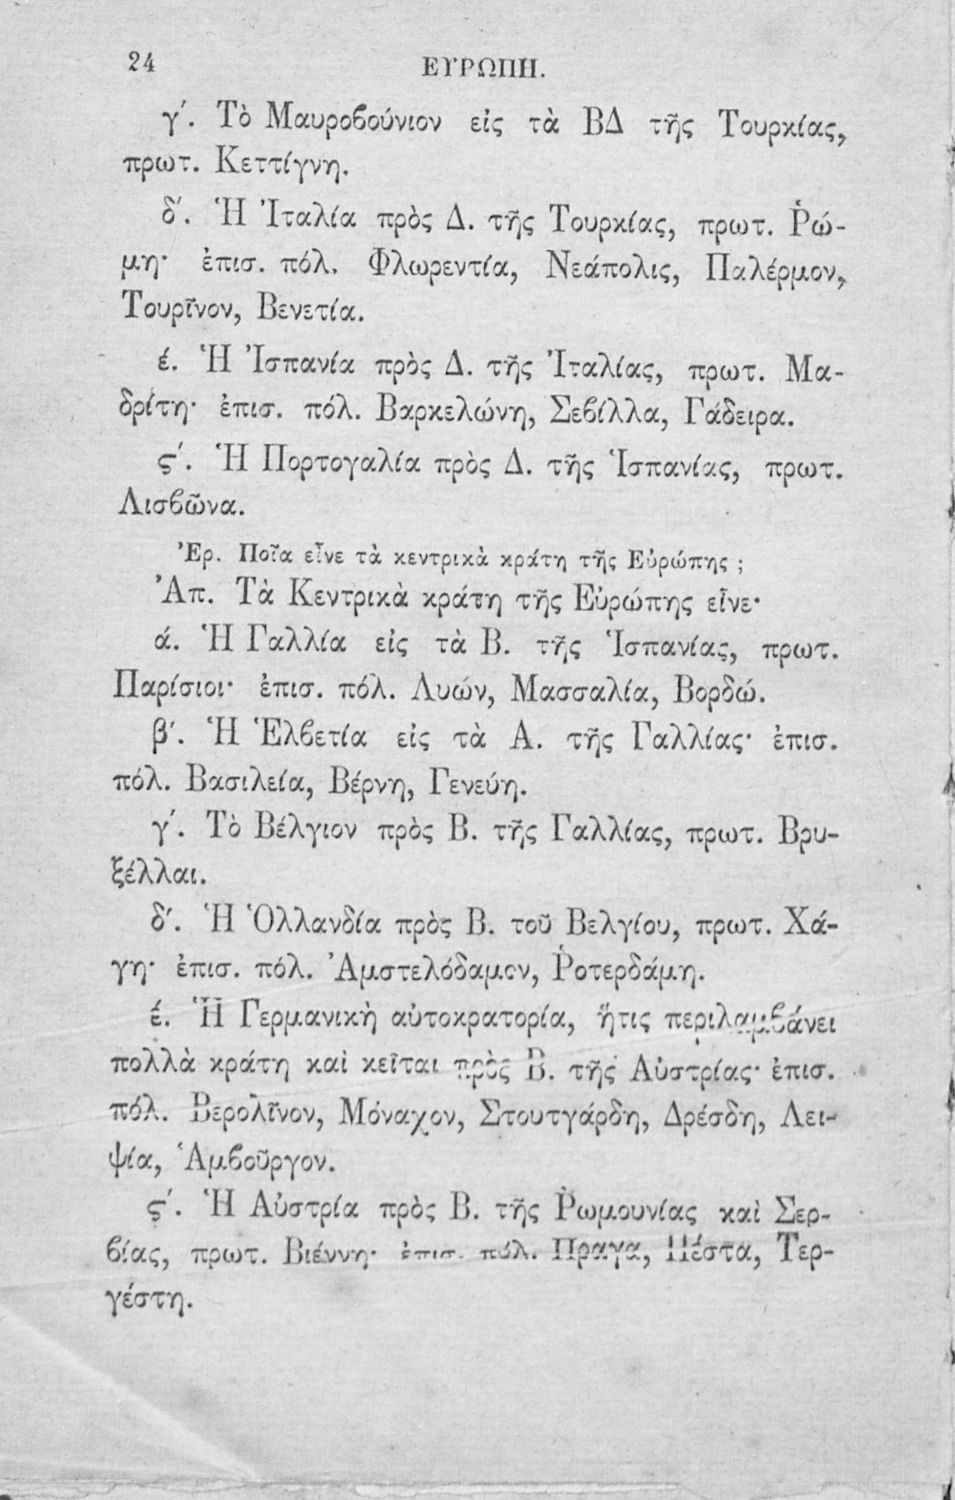 24 ΕΥΡΩΠΗ.
γ΄. Τὸ Μαυροϐούνιον εἰς τὰ ΒΔ τῆς Τουρκίας,
πρωτ. Κεττίγνη.
δ΄. Ἡ Ἰταλία πρὸς Δ. τῆς Τουρκίας, πρωτ. Ῥώ-
μη· ἐπισ. πόλ. Φλωρεντία, Νεάπολις, Παλέρμον,
Τουρῖνον, Βενετία.
έ. Ἡ Ἰσπανία πρὸς Δ. τῆς Ἰταλίας, πρωτ. Μα-
δρίτη· ἐπισ. πόλ. Βαρκελώνη, Σεϐίλλα, Γάδειρα.
ς΄. Ἡ Πορτογαλία πρὸς Δ. τῆς Ἱσπανίας, πρωτ.
Λισϐῶνα.
Ἐρ. Ποῖα εἶνε τὰ κεντρικὰ κράτη τῆς Εὐρώπης ;
Ἀπ. Τὰ Κεντρικὰ κράτη τῆς Εὐρώπης εἶνε·
ά. Ἡ Γαλλία εἰς τὰ Β. τῆς Ἱσπανίας, πρωτ.
Παρίσιοι· ἐπισ. πόλ. Λυών, Μασσαλία, Βορδώ.
β΄. Ἡ Ἑλϐετία εἰς τὰ Α. τῆς Γαλλίας· ἐπισ.
πόλ. Βασιλεία, Βέρνη, Γενεύη.
γ΄. Τὸ Βέλγιον πρὸς Β. τῆς Γαλλίας, πρωτ. Βρυ-
ξέλλαι.
δ΄. Ἡ Ὁλλανδία πρὸς Β. τοῦ Βελγίου, πρωτ. Χά-
γη· ἐπισ. πόλ. Ἀμστελόδαμον, Ῥοτερδάμη.
έ. Ἡ Γερμανικὴ αὐτοκρατορία, ἥτις περιλαμϐάνει
πολλὰ κράτη καὶ κεῖται πρὸς Β. τῆς Αὐστρίας· ἐπισ.
πόλ. Βερολῖνον, Μόναχον, Στουτγάρδη, Δρέσδη, Λει-
ψία, Ἁμϐοῦργον.
ς΄. Ἡ Αὐστρία πρὸς Β. τῆς Ῥωμουνίας καὶ Σερ-
ϐίας, πρωτ. Βιέννη· ἐπισ. πόλ. Πραγα, Πέστα, Τερ-
γέστη.